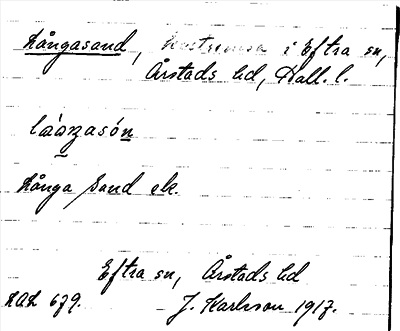 Långasand, i Eftra sn,
Årstads hd, Hall. l.
låŋasón
Långa Sand ek.
Eftra sn, Årstads hd
LAL 679. J. Karlsson 1917.